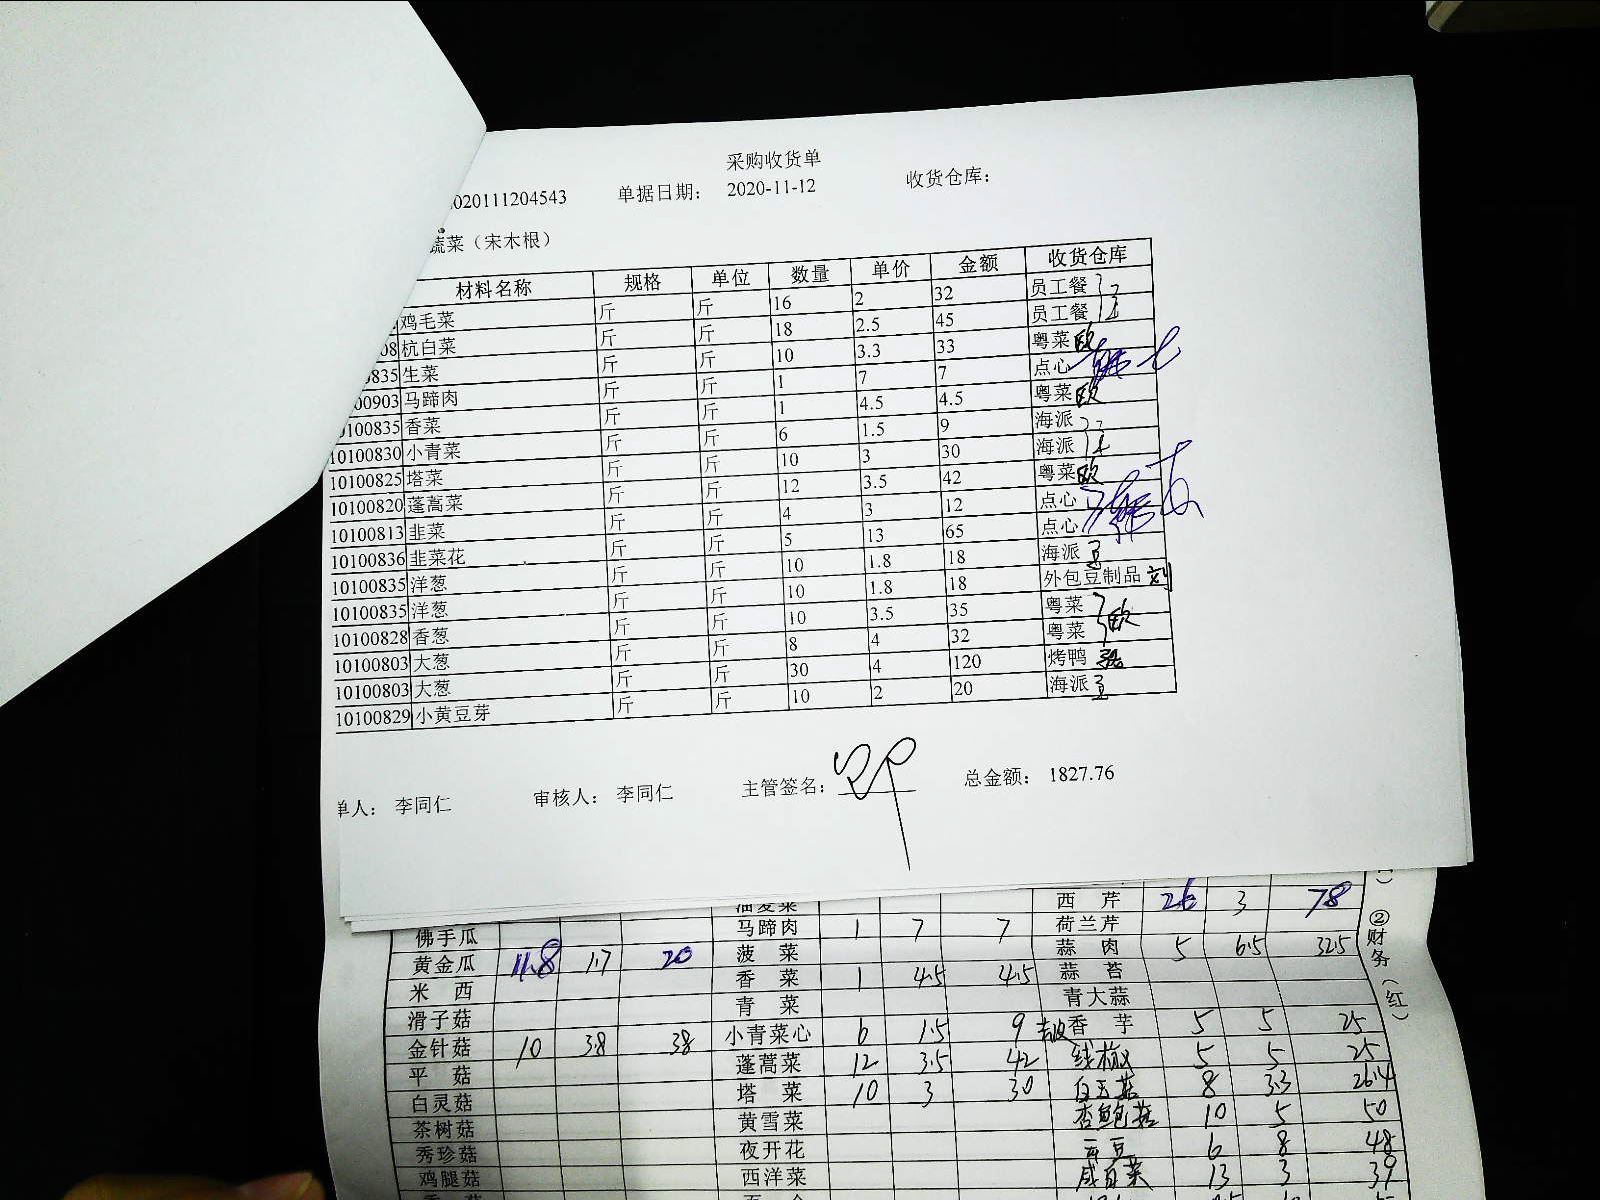 采购收货单
020111204543 单据日期： 2020-11-12 收货仓库：
蔬菜（宋木根）
材料名称 规格 单位 数量 单价 金额 收货仓库
鸡毛菜 斤 斤 16 2 32 员工餐
08 杭白菜 斤 斤 18 2.5 45 员工餐
0835 生菜 斤 斤 10 3.3 33 粤菜 欧
00903 马蹄肉 斤 斤 1 7 7 点心
0100835 香菜 斤 斤 1 4.5 4.5 粤菜 欧
10100830 小青菜 斤 斤 6 1.5 9 海派
10100825 塔菜 斤 斤 10 3 30 海派
10100820 蓬蒿菜 斤 斤 12 3.5 42 粤菜 欧
10100813 韭菜 斤 斤 4 3 12 点心
10100836 韭菜花 斤 斤 5 13 65 点心
10100835 洋葱 斤 斤 10 1.8 18 海派
10100835 洋葱 斤 斤 10 1.8 18 外包豆制品 刘
10100828 香葱 斤 斤 10 3.5 35 粤菜 欧
10100803 大葱 斤 斤 8 4 32 粤菜
10100803 大葱 斤 斤 30 4 120 烤鸭
10100829 小黄豆芽 斤 斤 10 2 20 海派
单人： 李同仁 审核人： 李同仁 主管签名： 总金额： 1827.76
油麦菜 西芹 26 3 78
佛手瓜 马蹄肉 1 7 7 荷兰芹
黄金瓜 11.8 1.7 20 菠菜 蒜肉 5 6.5 32.5
米西 香菜 1 4.5 4.5 蒜苔
滑子菇 青菜 青大蒜
金针菇 10 3.8 38 小青菜心 6 1.5 9 去皮香芋 5 5 25
平菇 蓬蒿菜 12 3.5 42 线椒 5 5 25
白灵菇 塔菜 10 3 30 白玉菇 8 3.3 26.4
茶树菇 黄雪菜 杏鲍菇 10 5 50
秀珍菇 夜开花 云豆 6 8 48
鸡腿菇 西洋菜 咸白菜 13 3 39
②财务（红）